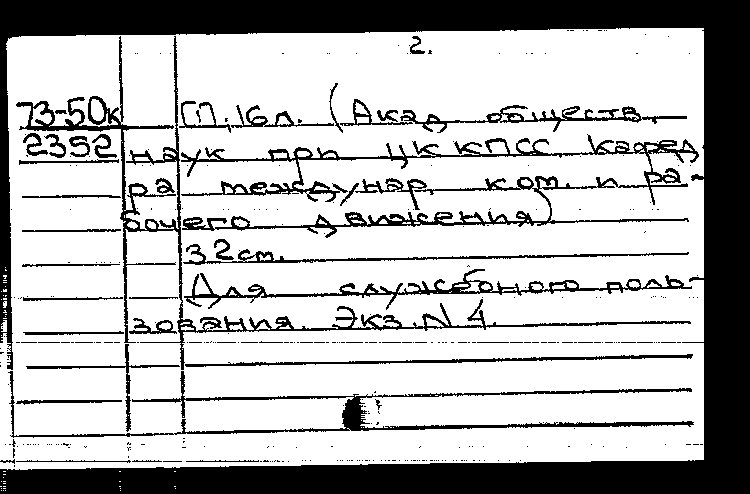 2.
73-50к ГП, 16 л. (Акад обществ.
2392 наук при ЦК КПСС. Кафед-
ра междунар. ком. и ра-
бочего движения)
32 см.
Для служебного поль-
зования. Экз. N 4.